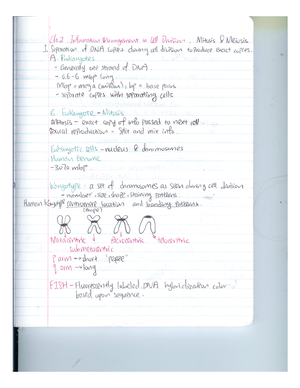 Ch.2 Information Management in Cell Division... Mitosis & Meiosis
1. Separation of DNA copies during cell division to produce exact copies.
A. Prokaryotes
- Generally one strand of DNA.
- 0.6-6 mbp long.
Mbp = mega (million), bp = base pairs
- separate copies with separating cells
B. Eukaryote - Mitosis
Mitosis - exact copy of info passed to next cell
Sexual reproduction - Split and mix info.
Eukaryotic cells - nucleus & chromosomes
Human Genome
-3070 mbp
Karyotype: a set of chromosomes as seen during cell division
- number, size, shape, staining patterns
Human Karyotype centromere location and banding patterns.
(shape)
Metacentric Acrocentric Telocentric
Submetacentric
p arm → short "petite"
q arm → long
FISH - Fluorescently labeled DNA hybridization color
based upon sequence.